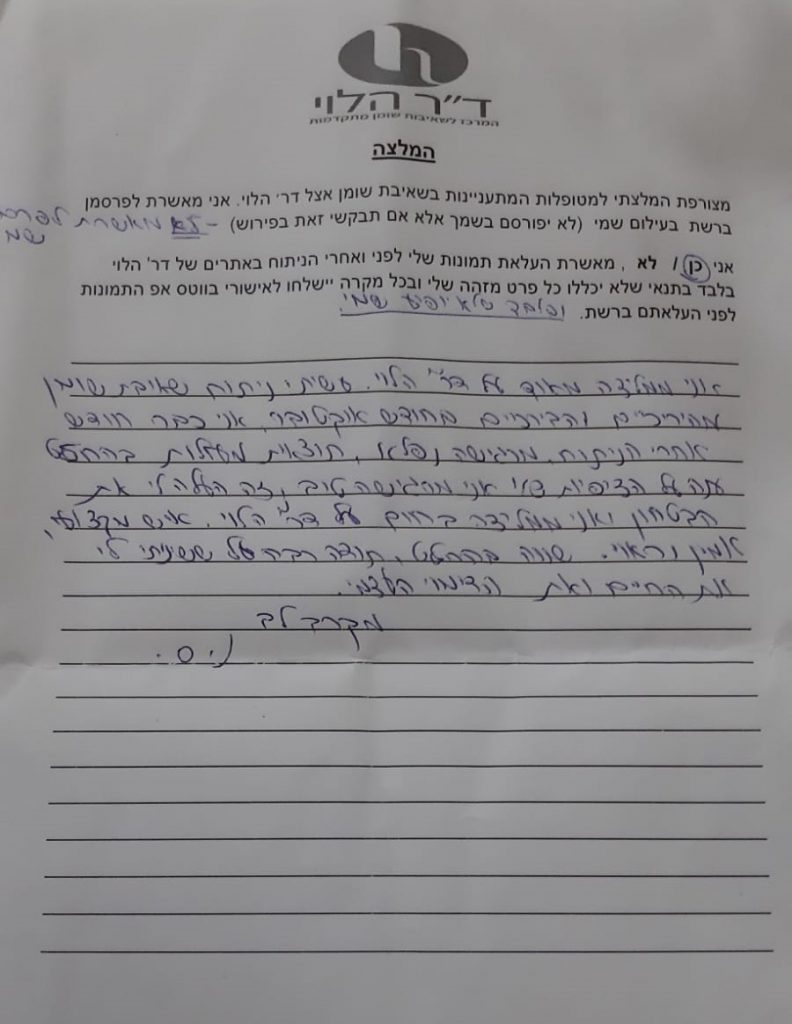 ד״ר הלוי
המרכז לשאיבות שומן מתקדמות
המלצה
מצורפת המלצתי למטופלות המתעניינות בשאיבת שומן אצל דר׳ הלוי. אני מאשרת לפרסמן
ברשת בעילום שמי (לא יפורסם בשמך אלא אם תבקשי זאת בפירוש) - לא מאשרת לפרסם
שמי
אני כן / לא , מאשרת העלאת תמונות שלי לפני ואחרי הניתוח באתרים של דר׳ הלוי
בלבד בתנאי שלא יכללו כל פרט מזהה שלי ובכל מקרה יישלחו לאישורי בווטס אפ התמונות
לפני העלאתם ברשת. ובלבד שלא יופיע שמי.
אני ממליצה מאוד על דר״ הלוי. עשיתי ניתוח שאיבת שומן
מהירכיים והביריים בחודש אוקטובר, אני כבר חודש
אחרי הניתוח, מרגישה נפלא, תוצאות מעולות בהחלט
ענה על הציפיות שלי אני מרגישה טוב, זה העלה לי את
הבטחון ואני ממליצה בחום על דר״ הלוי. איש מקצועי,
אמין וראוי. שווה בהחלט, תודה רבה על ששינית לי
את החיים ואת הדימוי העצמי.
מקרב לב
נ.ס.